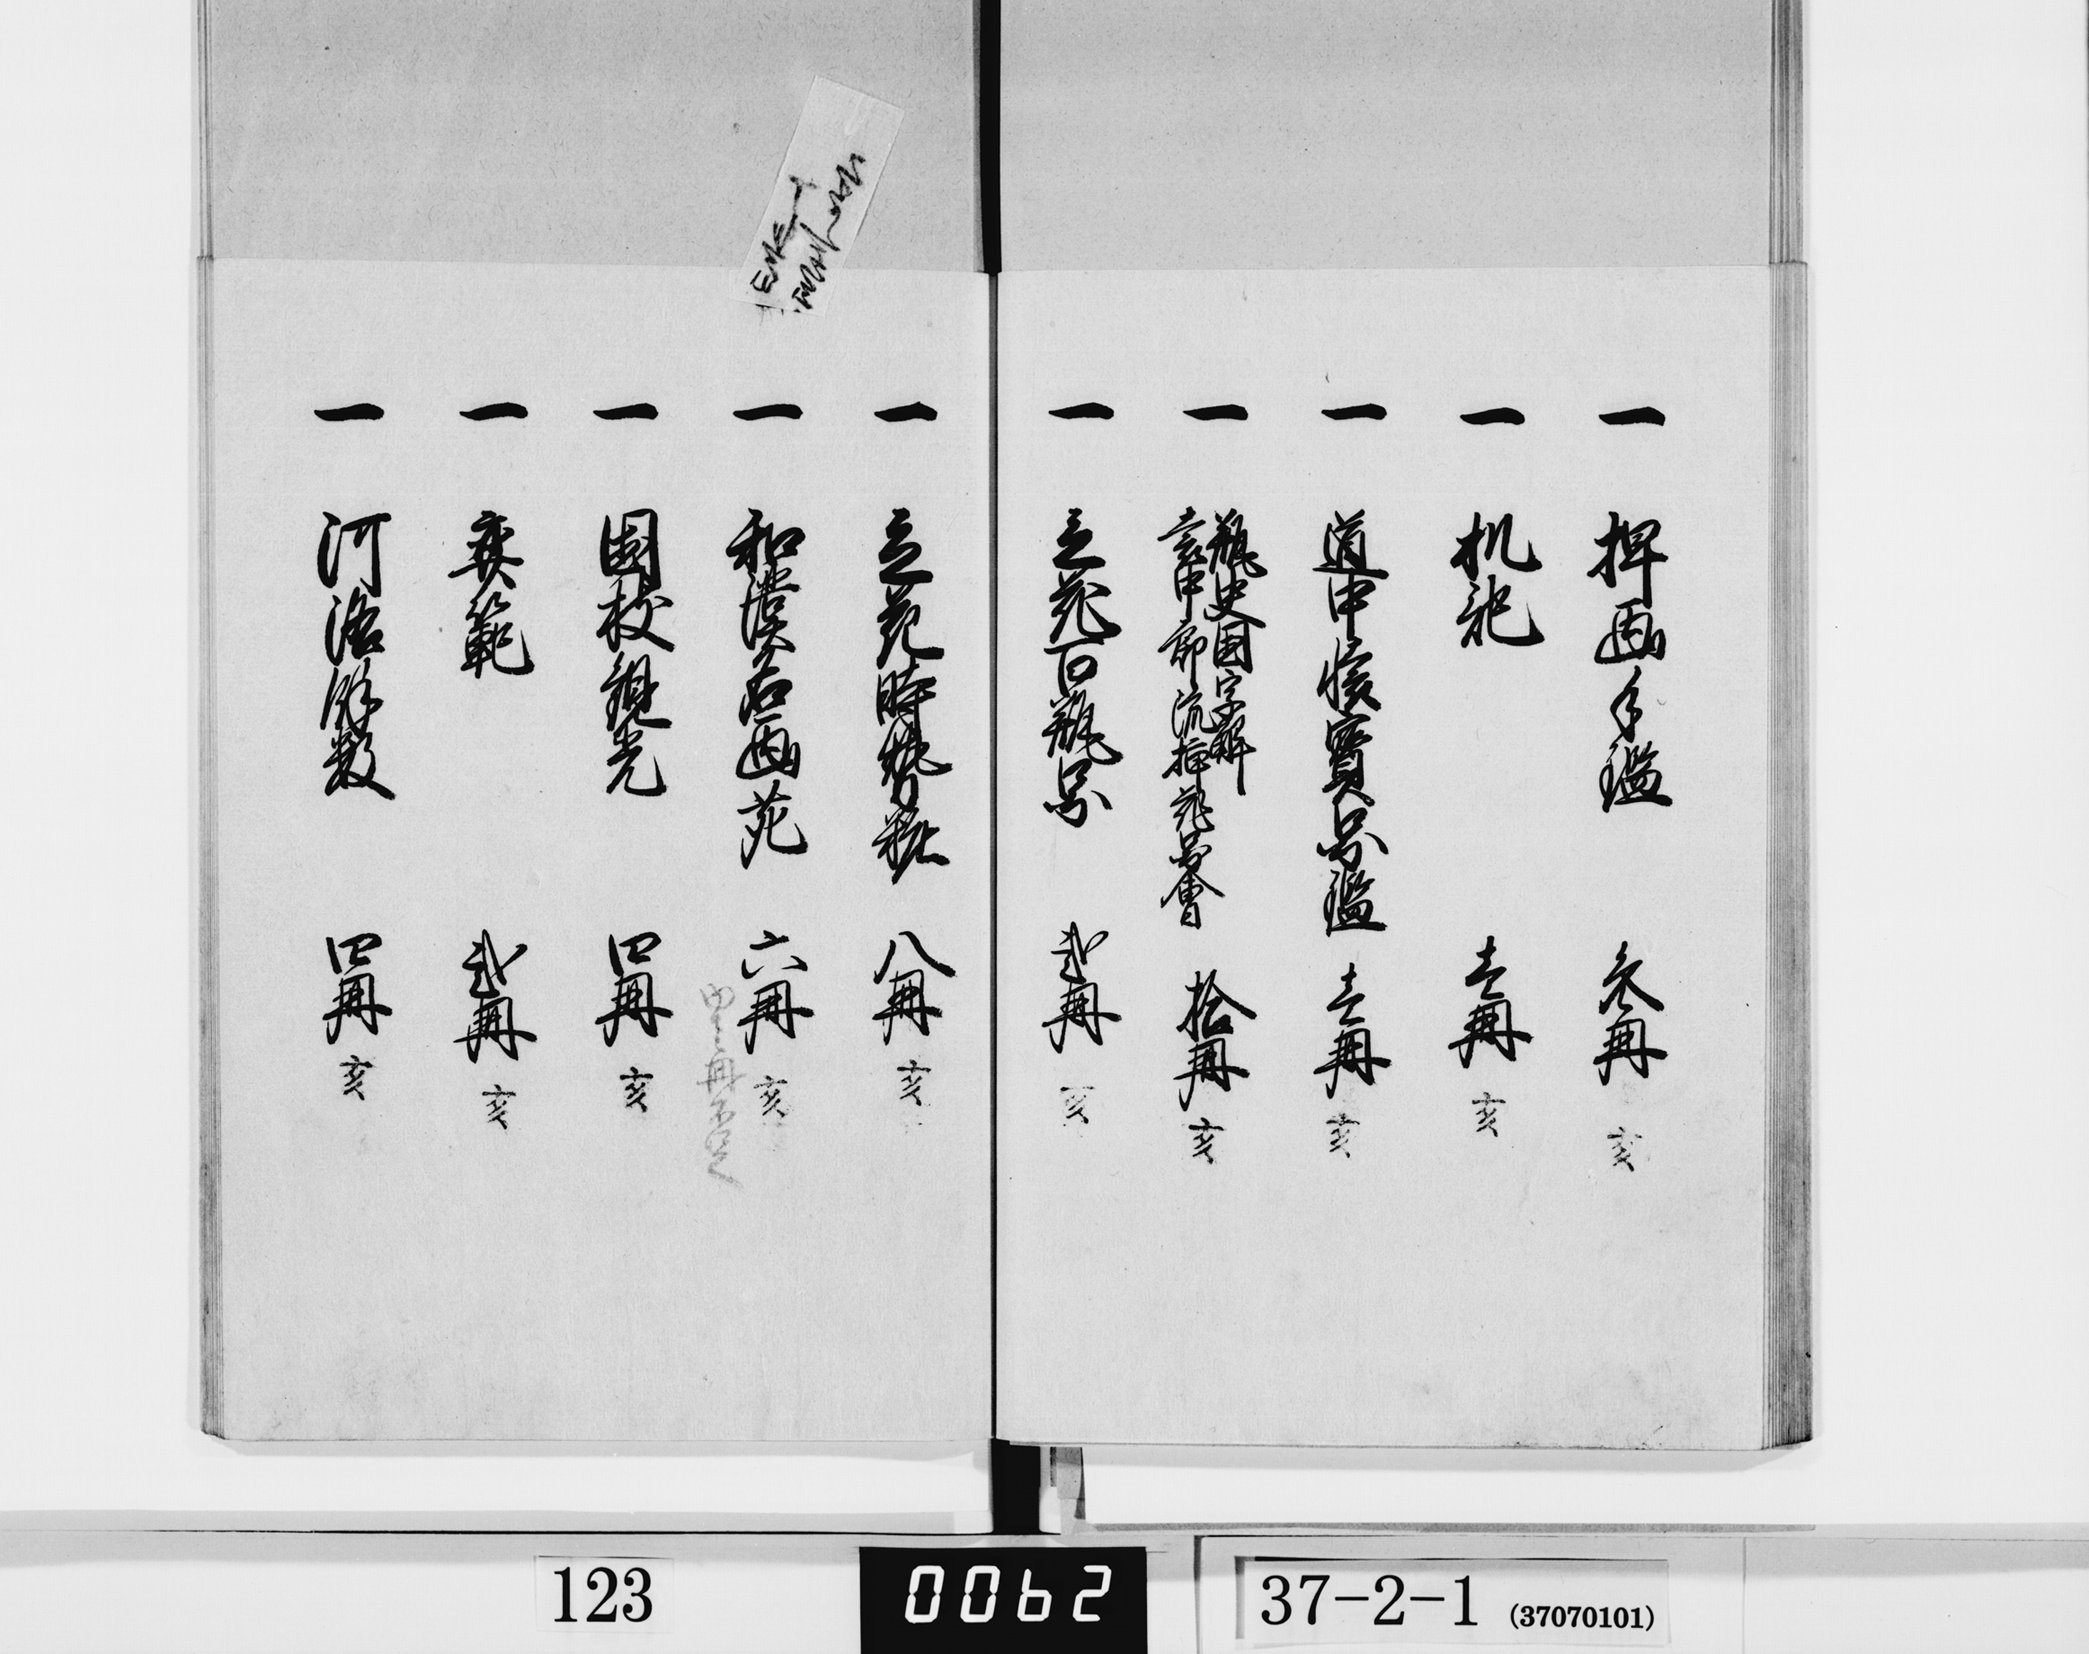 一 押画手鑑 参冊 亥
一 机祀 壱冊 亥
一 道中懐寳図鑑 壱冊 亥
一 瓶史国字解
袁中郎流挿花図會 拾冊 亥
一 立花百瓶図 弐冊 亥
一 立花時勢粧 八冊 亥
一 和漢名画苑 六冊 亥
一 国校観光 四冊 亥
一 奕範 弐冊 亥
一 河洛餘数 四冊 亥
123
0062
37-2-1 (37070101)